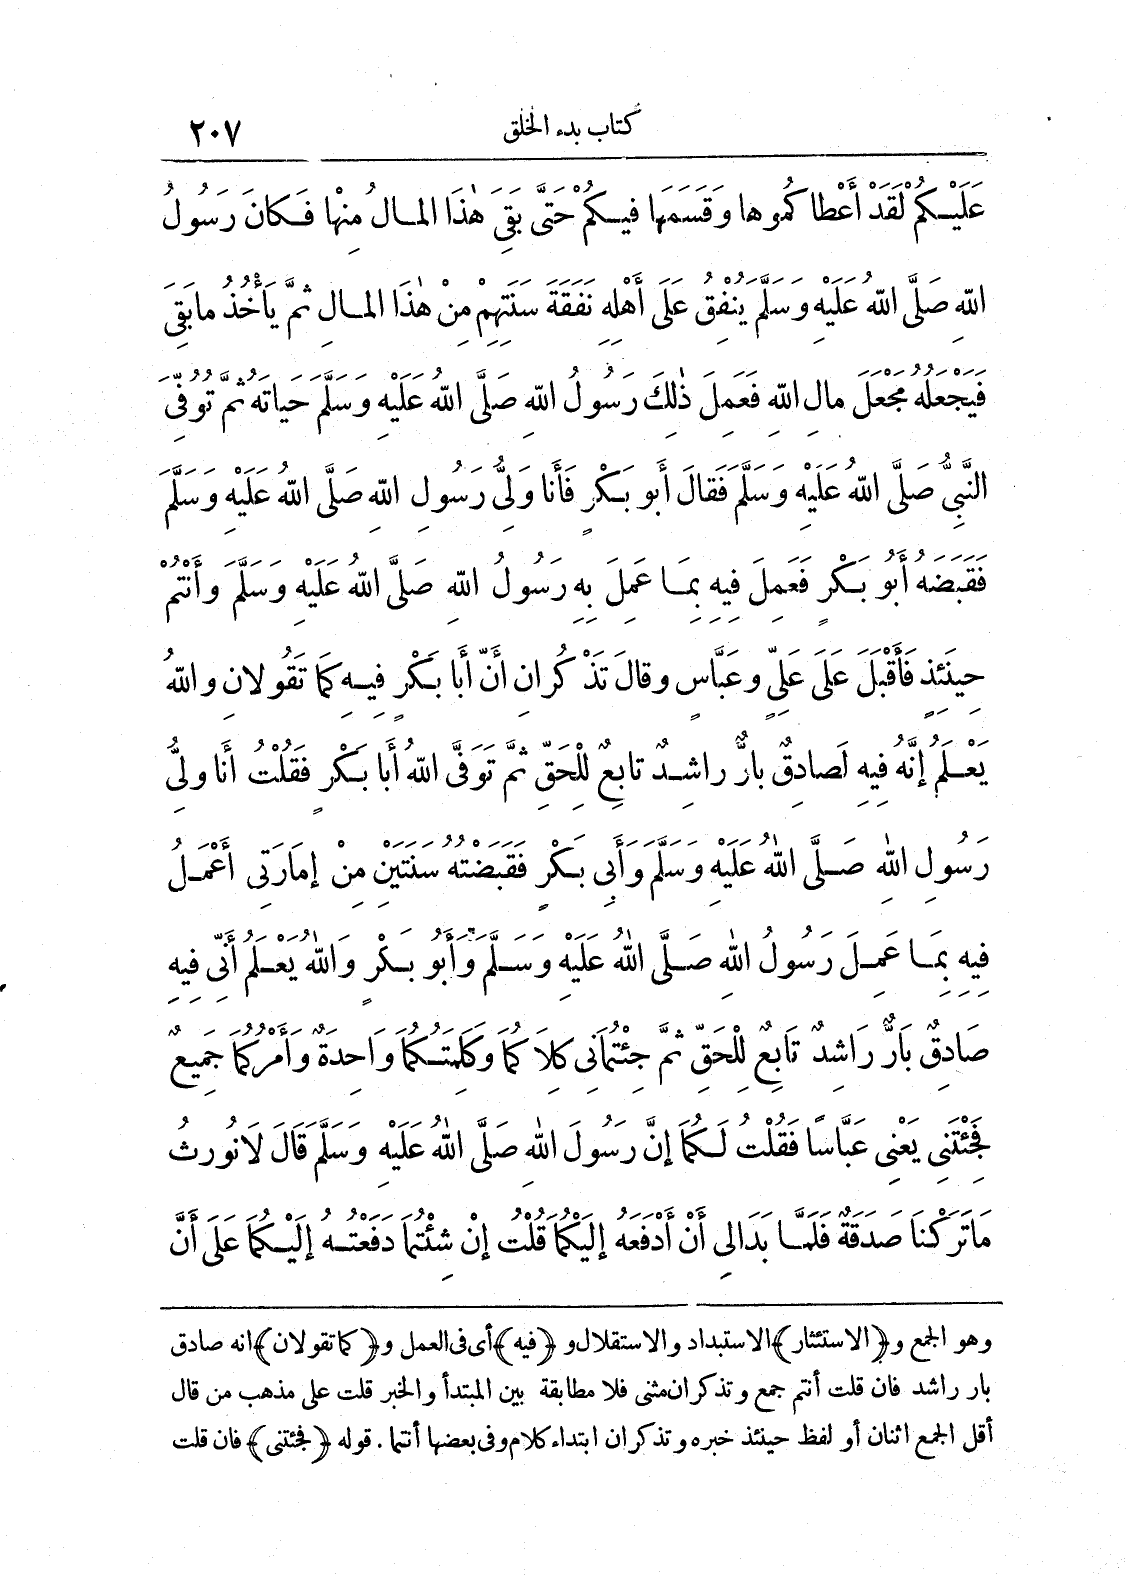 كتاب بدء الخلق
٢٠٧
عَلَيْكُمْ لَقَدْ أَعْطاكُموها وَقَسَمَها فيكُمْ حَتَّى بَقِيَ هٰذَا المالُ مِنْها فَكانَ رَسولُ
اللّهِ صَلَّى اللّهُ عَلَيْهِ وَسَلَّمَ يُنْفِقُ عَلَى أَهْلِهِ نَفَقَةَ سَنَتِهِمْ مِنْ هٰذَا المالِ ثُمَّ يَأْخُذُ مابَقِيَ
فَيَجْعَلُهُ مَجْعَلَ مالِ اللّهِ فَعَمِلَ ذٰلِكَ رَسُولُ اللّهِ صَلَّى اللّهُ عَلَيْهِ وَسَلَّمَ حَياتَهُ ثُمَّ تُوُفِّيَ
النَّبِيُّ صَلَّى اللّهُ عَلَيْهِ وَسَلَّمَ فَقالَ أَبو بَكْرٍ فَأَنا وَلِيُّ رَسُولِ اللّهِ صَلَّى اللّهُ عَلَيْهِ وَسَلَّمَ
فَقَبَضَهُ أَبُو بَكْرٍ فَعَمِلَ فِيهِ بِمَا عَمِلَ بِهِ رَسُولُ اللّهِ صَلَّى اللّهُ عَلَيْهِ وَسَلَّمَ وَأَنْتُمْ
حِينَئِذٍ فَأَقْبَلَ عَلَى عَلِيٍّ وعَبَّاسٍ وقالَ تَذْكُرانِ أَنَّ أَبا بَكْرٍ فِيهِ كَمَا تَقُولانِ واللّهُ
يَعْلَمُ إنَّهُ فِيهِ لَصادِقٌ بارٌّ راشِدٌ تابِعٌ لِلْحَقِّ ثُمَّ تَوَفَّى اللّهُ أَبا بَكْرٍ فَقُلْتُ أَنا وَلِيُّ
رَسُولِ اللّٰهِ صَلَّى اللّٰهُ عَلَيْهِ وَسَلَّمَ وَأَبِي بَكْرٍ فَقَبَضْتُهُ سَنَتَيْنِ مِنْ إمَارَتِي أَعْمَلُ
فِيهِ بِمَا عَمِلَ رَسُولُ اللّٰهِ صَلَّى اللّٰهُ عَلَيْهِ وَسَلَّمَ وَأَبُو بَكْرٍ وَاللّٰهُ يَعْلَمُ أَنِّي فِيهِ
صَادِقٌ بَارٌّ رَاشِدٌ تَابِعٌ لِلْحَقِّ ثُمَّ جِئْتُمَانِي كِلَاكُمَا وَكَلِمَتُكُمَا وَاحِدَةٌ وَأَمْرُكُمَا جَمِيعٌ
فَجِئْتَنِي يَعْنِي عَبَّاسًا فَقُلْتُ لَكُمَا إنَّ رَسُولَ اللّٰهِ صَلَّى اللّٰهُ عَلَيْهِ وَسَلَّمَ قَالَ لَا نُورَثُ
مَاتَرَكْنَا صَدَقَةٌ فَلَمَّا بَدَالِي أَنْ أَدْفَعَهُ إلَيْكُمَا قُلْتُ إنْ شِئْتُمَا دَفَعْتُهُ إلَيْكُمَا عَلَى أَنَّ
وهو الجمع و ﴿الاستئثار﴾ الاستبداد والاستقلال و ﴿فيه﴾ أى فى العمل و ﴿كما تقولان﴾ انه صادق
بار راشد فان قلت أنتم جمع وتذكران مثنى فلا مطابقة بين المبتدأ والخبر قلت على مذهب من قال
أقل الجمع اثنان أو لفظ حينئذ خبره وتذكران ابتداء كلام وفى بعضها أنتما . قوله ﴿فجئتنى﴾ فان قلت